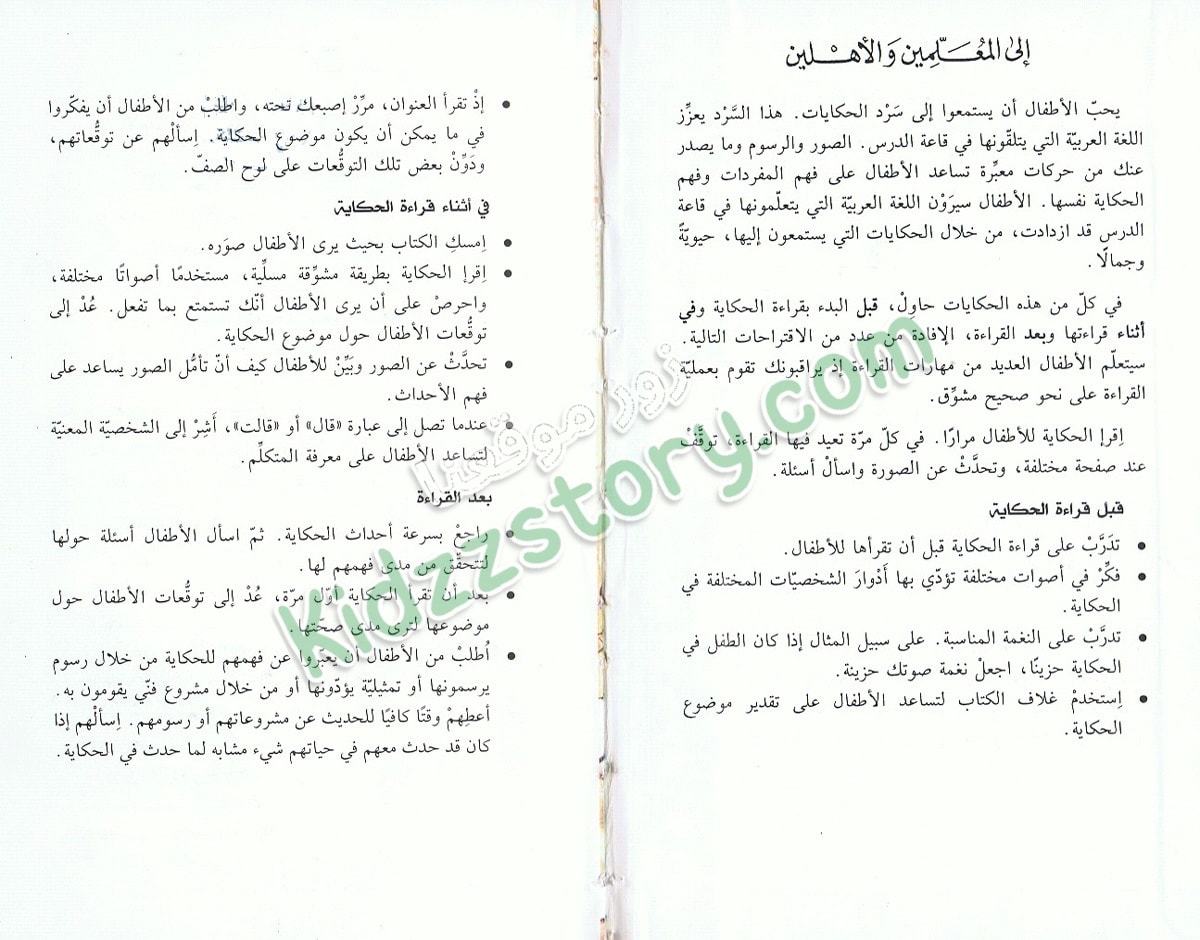 إلى المُعَلِّمين وَالأهْلين
يحبّ الأطفال أن يستمعوا إلى سَرْد الحكايات. هذا السَّرْد يعزِّز
اللغة العربيّة التي يتلقّونها في قاعة الدرس. الصور والرسوم وما يصدر
عنك من حركات معبِّرة تساعد الأطفال على فهم المفردات وفهم
الحكاية نفسها. الأطفال سيرَوْن اللغة العربيّة التي يتعلّمونها في قاعة
الدرس قد ازدادت، من خلال الحكايات التي يستمعون إليها، حيويّةً
وجمالًا.
في كلّ من هذه الحكايات حاوِلْ، قبل البدء بقراءة الحكاية وفي
أثناء قراءتها وبعد القراءة، الإفادة من عدد من الاقتراحات التالية.
سيتعلّم الأطفال العديد من مهارات القراءة إذ يراقبونك تقوم بعمليّة
القراءة على نحو صحيح مشوِّق.
اِقرإ الحكاية للأطفال مرارًا. في كلّ مرّة تعيد فيها القراءة، توقَّفْ
عند صفحة مختلفة، وتحدَّثْ عن الصورة واسألْ أسئلة.
قبل قراءة الحكاية
• تدَرَّبْ على قراءة الحكاية قبل أن تقرأها للأطفال.
• فكِّرْ في أصوات مختلفة تؤدّي بها أَدْوارَ الشخصيّات المختلفة في
الحكاية.
• تدرَّبْ على النغمة المناسبة. على سبيل المثال إذا كان الطفل في
الحكاية حزينًا، اجعلْ نغمة صوتك حزينة.
• اِستخدمْ غلاف الكتاب لتساعد الأطفال على تقدير موضوع
الحكاية.
• إذْ تقرأ العنوان، مرِّرْ إصبعك تحته، واطلبْ من الأطفال أن يفكّروا
في ما يمكن أن يكون موضوع الحكاية. اِسألْهم عن توقُّعاتهم،
ودَوِّنْ بعض تلك التوقُّعات على لوح الصفّ.
في أثناء قراءة الحكاية
• اِمسكِ الكتاب بحيث يرى الأطفال صوَره.
• اِقرإ الحكاية بطريقة مشوِّقة مسلِّية، مستخدمًا أصواتًا مختلفة،
واحرصْ على أن يرى الأطفال أنّك تستمتع بما تفعل. عُدْ إلى
توقُّعات الأطفال حول موضوع الحكاية.
• تحدَّثْ عن الصور وبَيِّنْ للأطفال كيف أنّ تأمُّل الصور يساعد على
فهم الأحداث.
• عندما تصل إلى عبارة «قال» أو «قالت»، أَشِرْ إلى الشخصيّة المعنيّة
لتساعد الأطفال على معرفة المتكلِّم.
بعد القراءة
• راجعْ بسرعة أحداث الحكاية. ثمّ اسأل الأطفال أسئلة حولها
لتتحقّق من مدى فهمهم لها.
• بعد أن تقرأ الحكاية أوّل مرّة، عُدْ إلى توقُّعات الأطفال حول
موضوعها لترى مدى صحّتها.
• اُطلبْ من الأطفال أن يعبّروا عن فهمهم للحكاية من خلال رسوم
يرسمونها أو تمثيليّة يؤدّونها أو من خلال مشروع فنّي يقومون به.
أعطِهمْ وقتًا كافيًا للحديث عن مشروعاتهم أو رسومهم. اِسألْهم إذا
كان قد حدث معهم في حياتهم شيء مشابه لما حدث في الحكاية.
زورو موقعنا
Kidzzstory.com